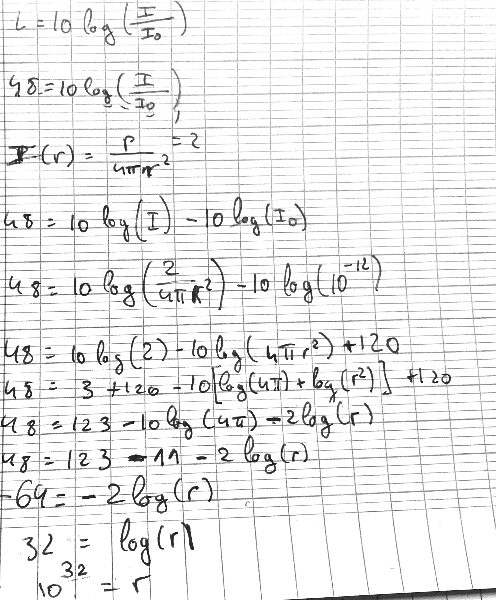 L = 10 log(I/I₀)
48 = 10 log(I/I₀)
I(r) = P/4πr² = 2
48 = 10 log(I) - 10 log(I₀)
48 = 10 log(2/4πr²) - 10 log(10⁻¹²)
48 = 10 log(2) - 10 log(4πr²) + 120
48 = 3 + 120 - 10[log(4π) + log(r²)] + 120
48 = 123 - 10 log(4π) - 2 log(r)
48 = 123 - 11 - 2 log(r)
-64 = - 2 log(r)
32 = log(r)
10³² = r